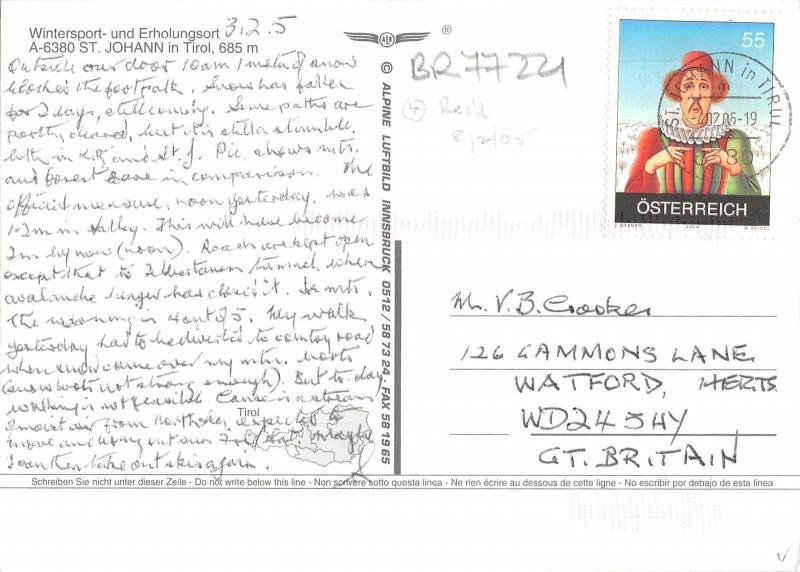 Wintersport- und Erholungsort 3.2.5
A-6380 ST. JOHANN in Tirol, 685 m
Outside our door 10am 1 metre of snow
blocked the footpath. Snow has fallen
for 2 days, still coming. Some paths are
partly cleared, but it is still a stumble
both in Kitz and St. J. Pic. shows mts.
and forest bare in comparison. The
official measure, noon yesterday, was
1.2m in valley. This will have become
2m by now (noon). Roads are kept open
except that to Felbertauern tunnel, where
avalanche danger has closed it. In mts.
the warning is 4 out of 5. My walk
yesterday had to be diverted to country road
when snow came over my mtn. boots
(snow boots not strong enough). But to-day
walking is not feasible. Cause is a stream
of moist air from North Sea, expected to
move and bring out sun
I can then take out skis again.
Tirol
ALPINE LUFTBILD INNSBRUCK 0512 / 58 73 24 . FAX 58 19 65
ALB
®
©
BR77221
4
Rec'd
8/2/05
55
ST. JOHANN in TIROL
ÖSTERREICH
Mr. V. B. Crooker
126 GAMMONS LANE
WATFORD, HERTS
WD24 5HY
GT. BRITAIN
Schreiben Sie nicht unter dieser Zeile - Do not write below this line - Non scrivere sotto questa linea - Ne rien écrire au dessous de cette ligne - No escribir por debajo de esta linea